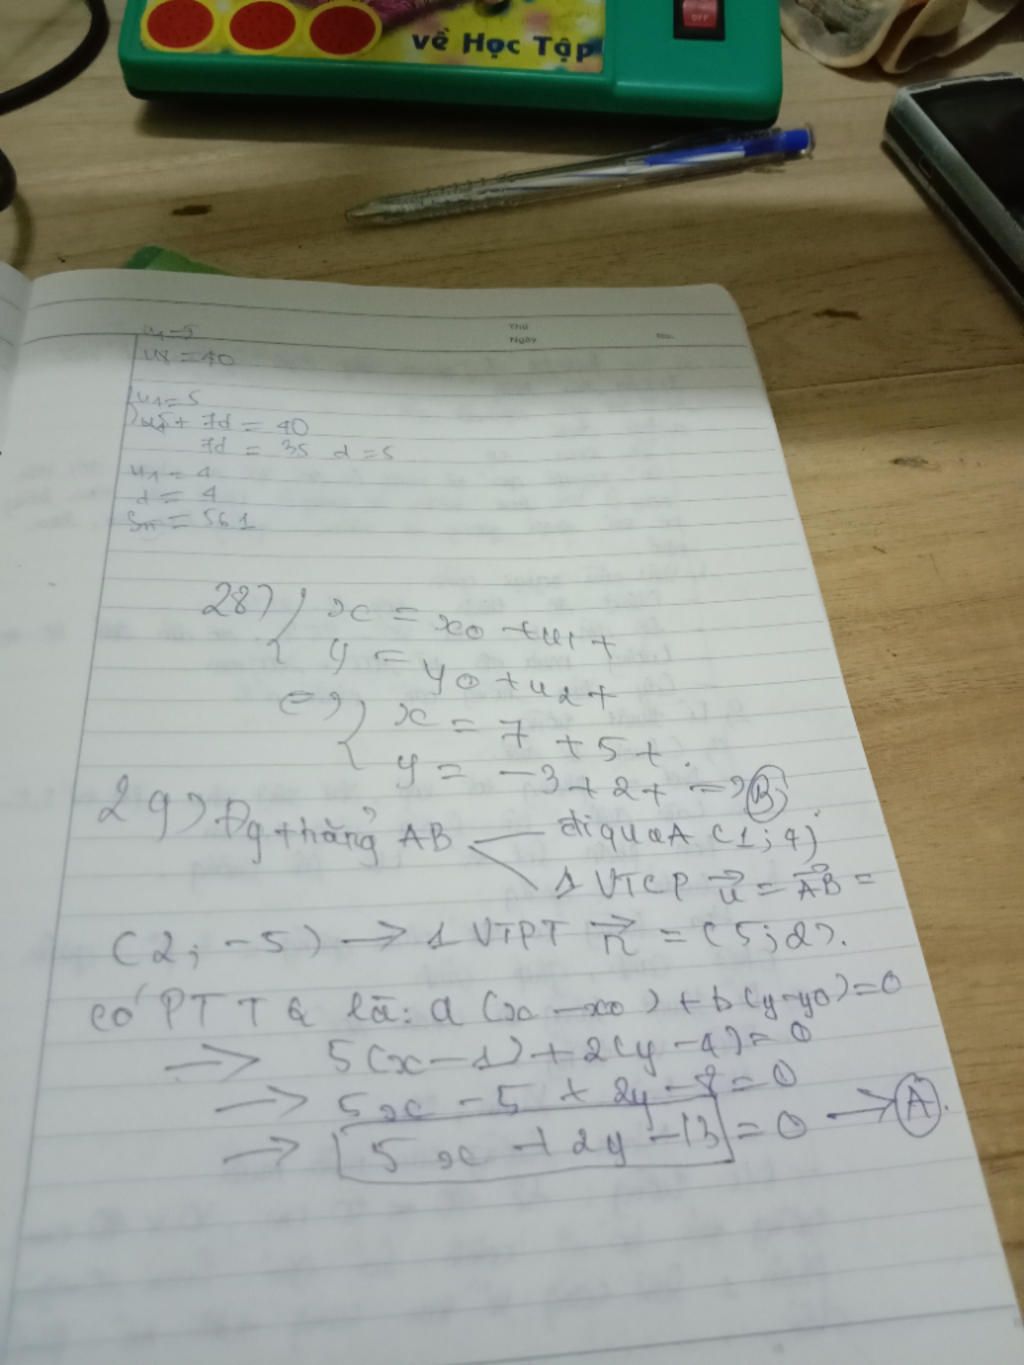 về Học Tập
OFF
Thứ
Ngày
u1=5
u8=40
u1=5
u5+ 7d = 40
7d = 35 d=5
u1 = 4
d = 4
Sn = 561
28) { x = x0 + u1t
y = y0 + u2t
=> { x = 7 + 5t.
y = -3 + 2t => B
29) Đg thẳng AB
đi qua A (1; 4)
1 VTCP u = AB =
(2; -5) → 1 VTPT n = (5; 2).
có PTTQ là: a (x - x0) + b(y-y0)=0
=> 5(x-1)+2(y-4)=0
=> 5x - 5 + 2y-8=0
=> 5x + 2y -13 = 0 → A.